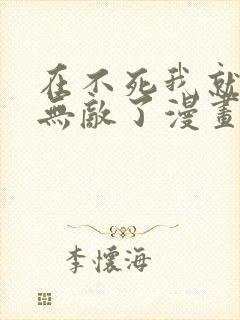 在不死我就
無敵了漫畫
李懷海